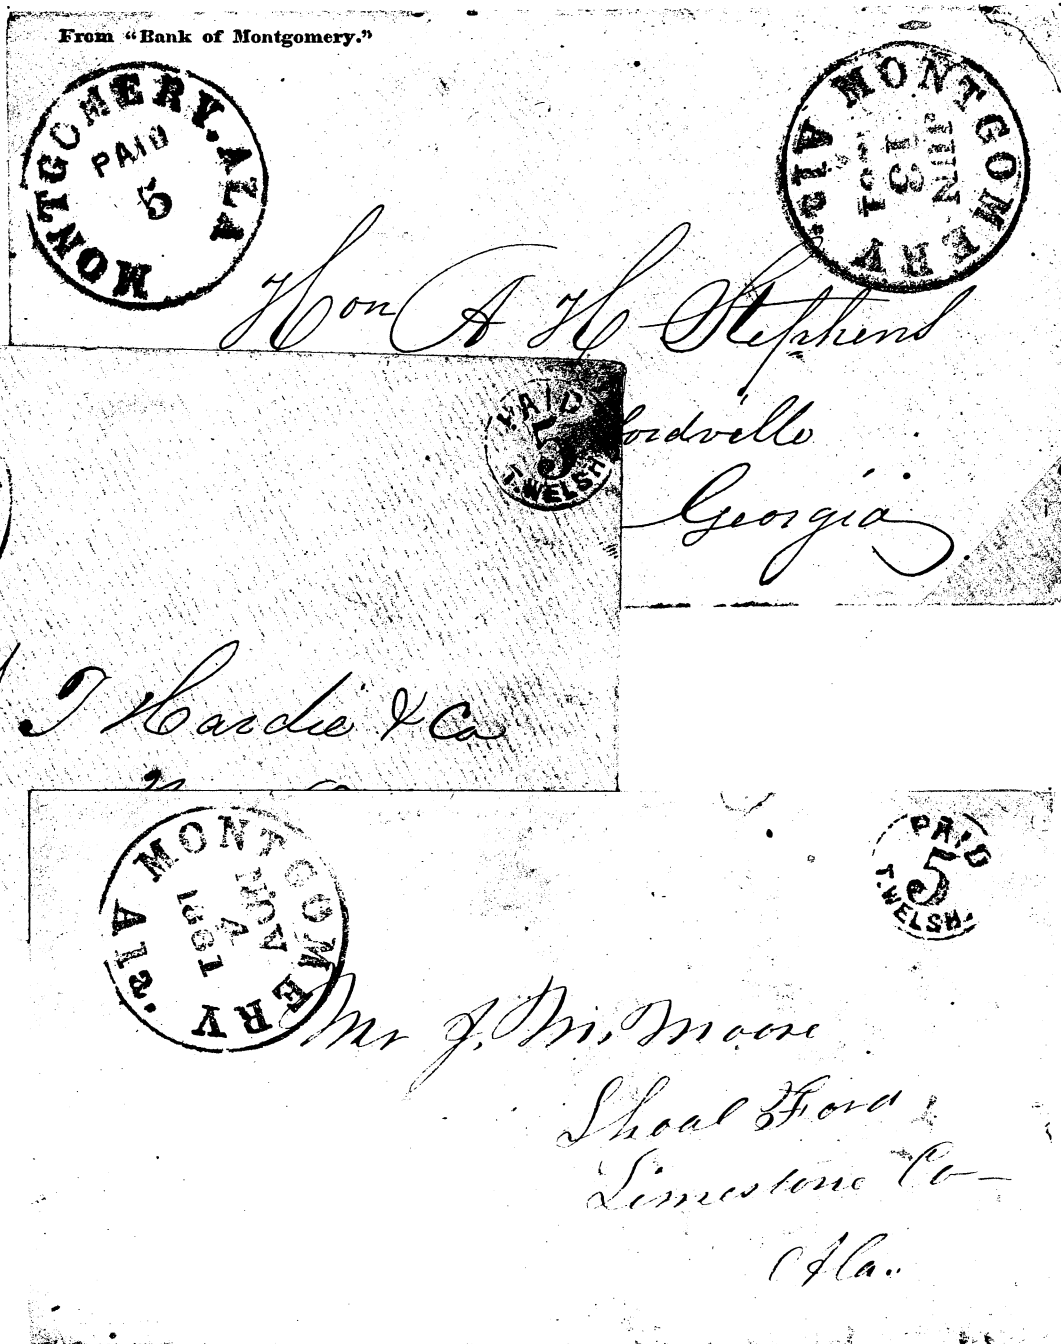 From “Bank of Montgomery.”
MONTGOMERY. ALA
PAID
5
MONTGOMERY Ala.
JUN
13
1861
Hon A H Stephens
fordville
Georgia
PAID
5
T. WELSH
J Hardie & Co
MONTGOMERY Ala.
NOV
4
1861
PAID
5
T. WELSH.
Mr J. M. Moore
Shoal Ford
Limestone Co
Ala.